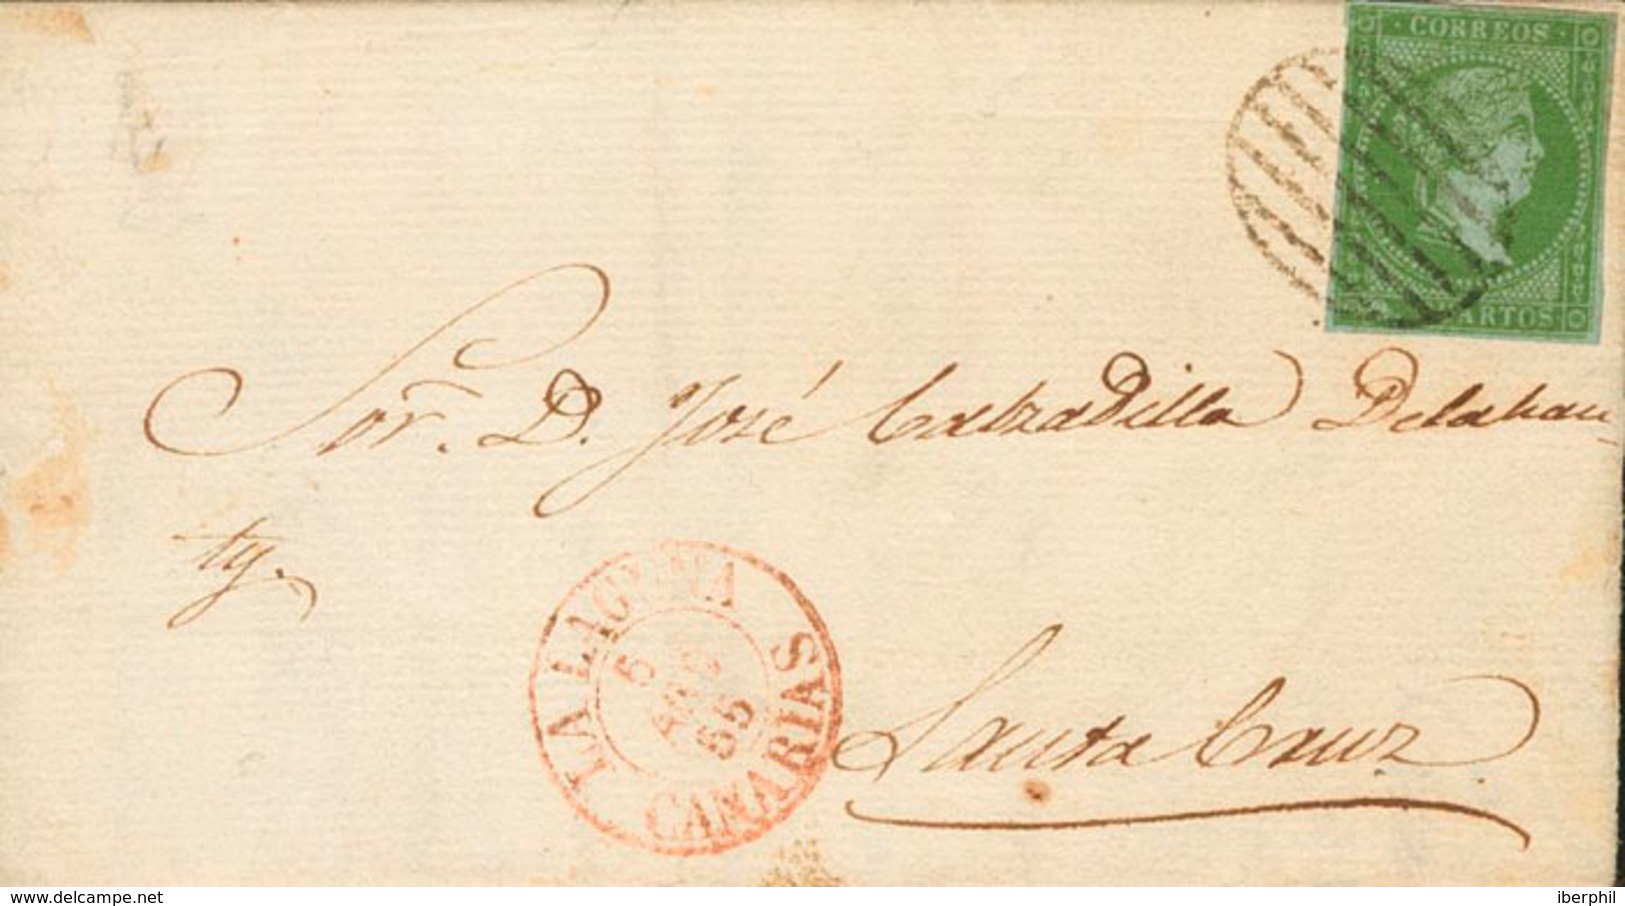 CORREOS
CUARTOS
Sor. D. José Calzadilla Delahan-
ty.
LA LAGUNA
5
AGO
55
CANARIAS
Santa Cruz
www.delcampe.net
iberphil